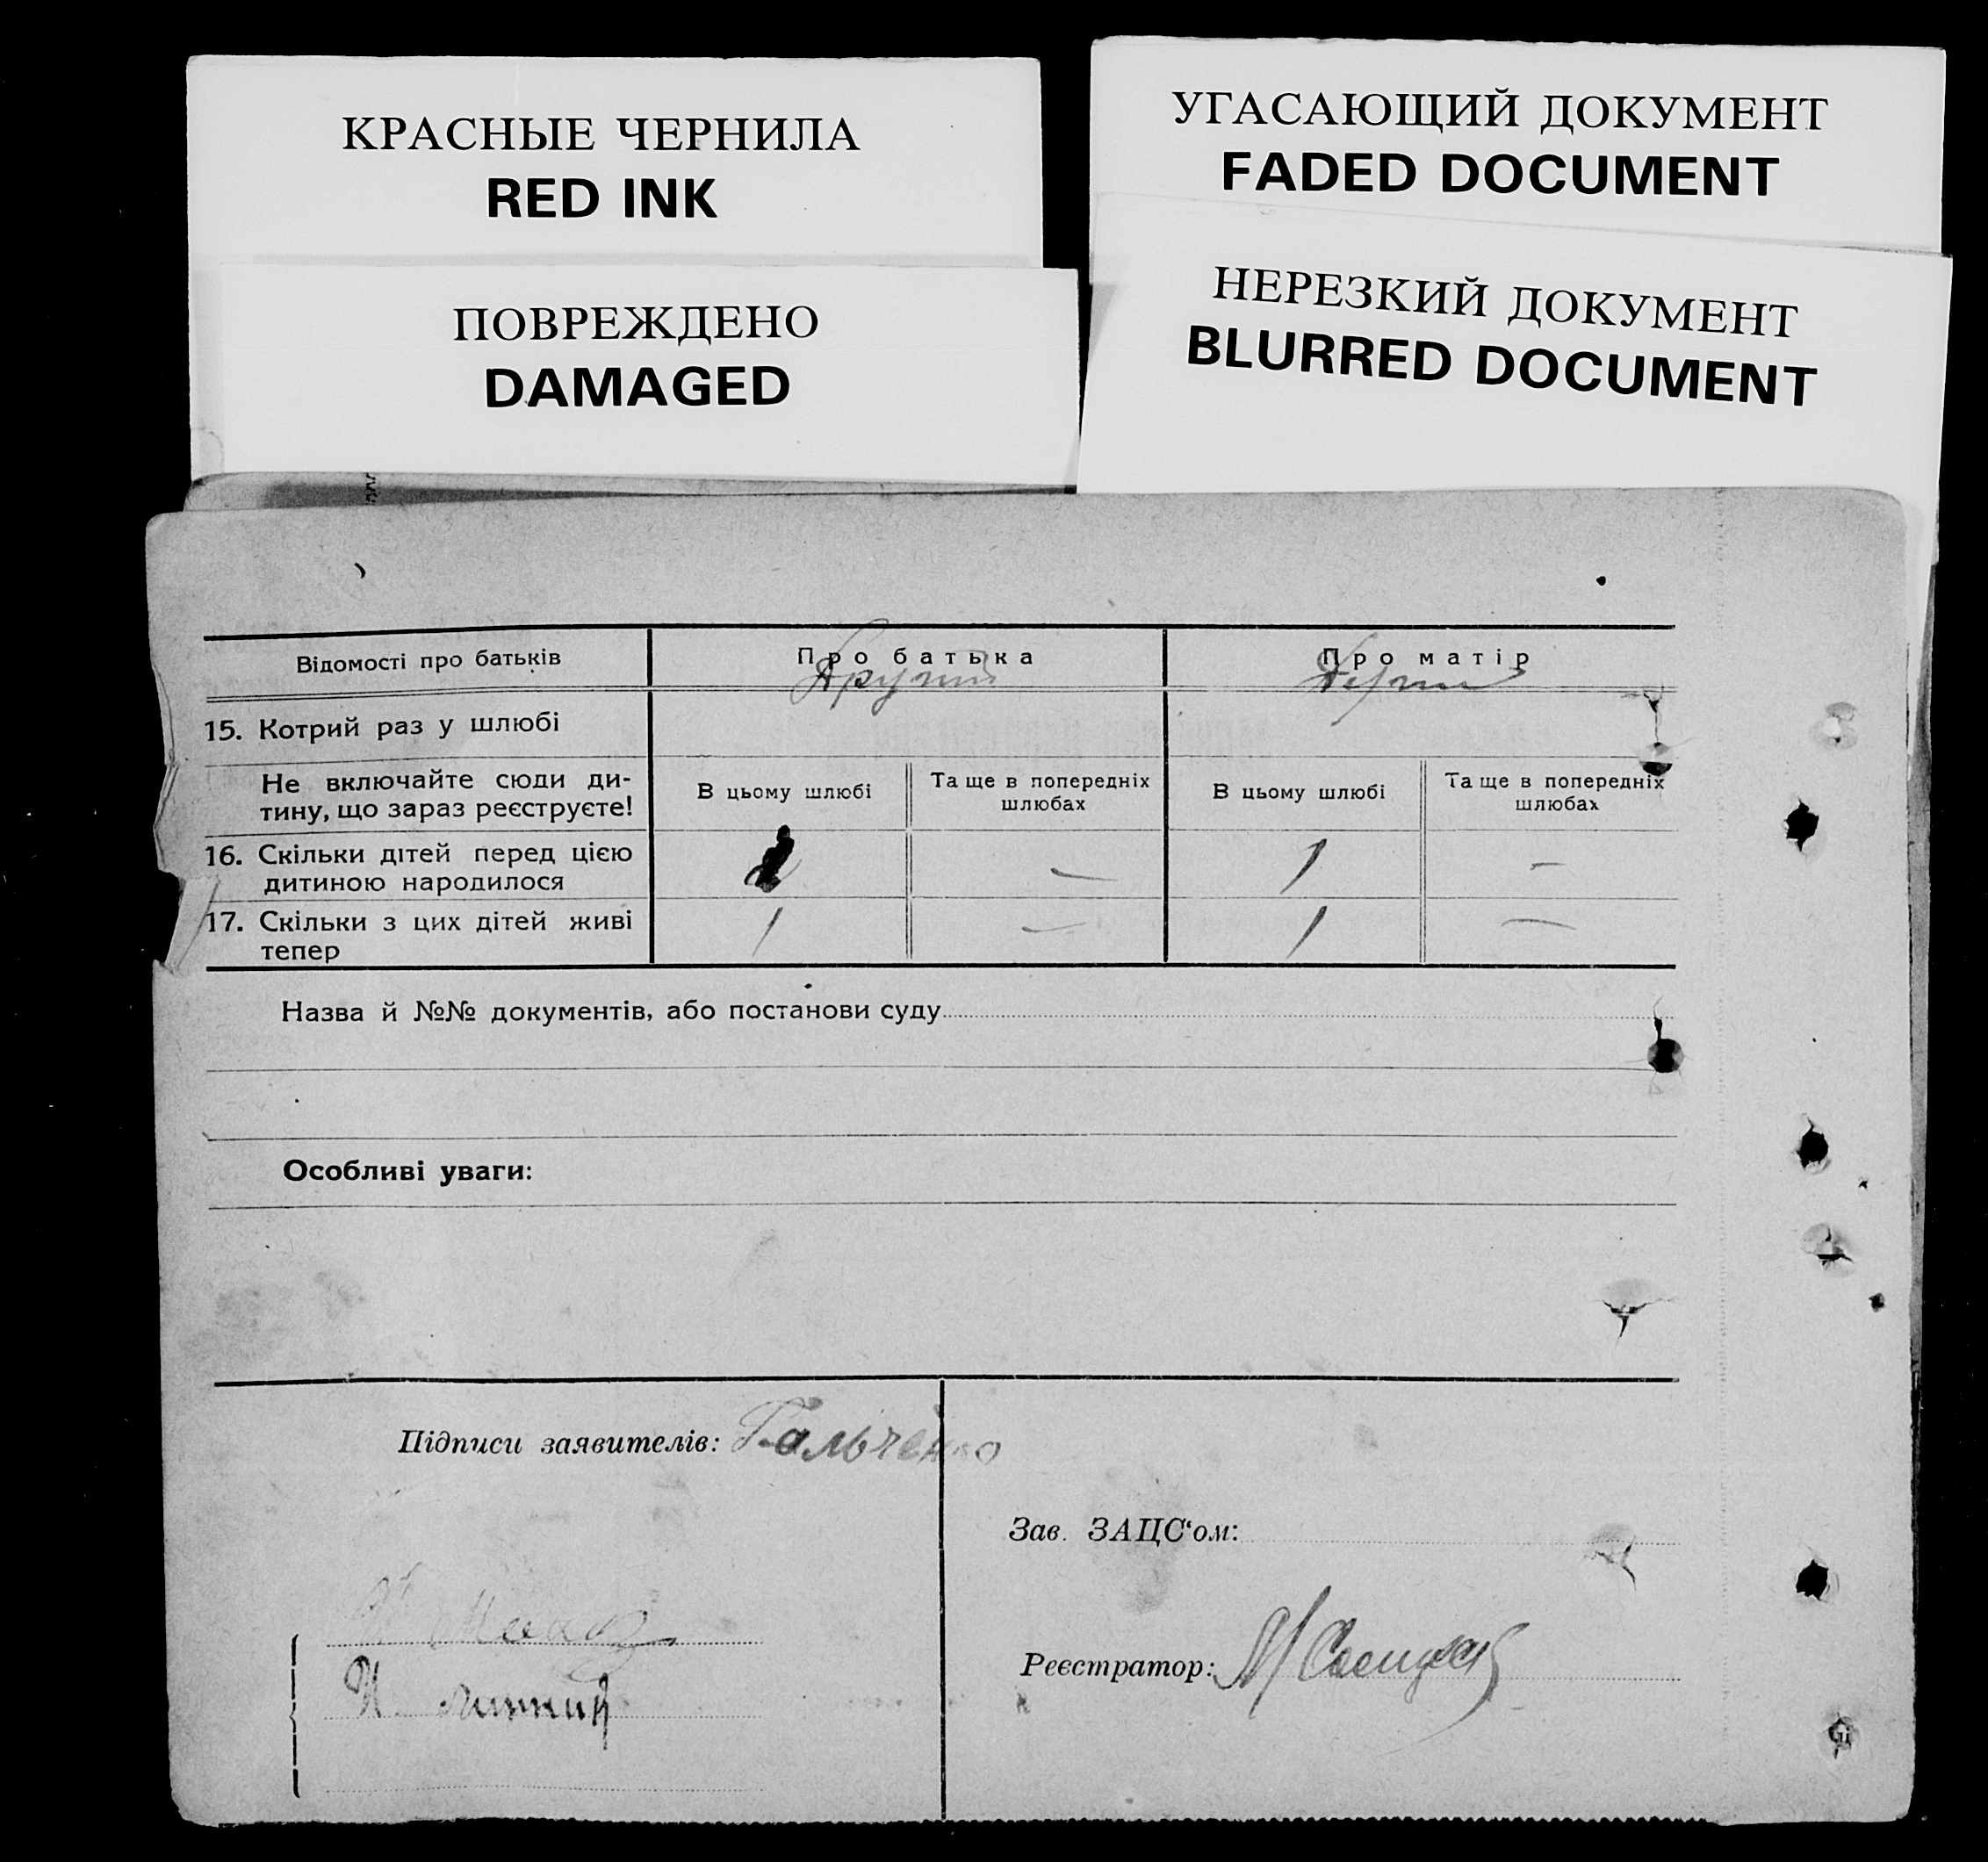 КРАСНЫЕ ЧЕРНИЛА
RED INK
УГАСАЮЩИЙ ДОКУМЕНТ
FADED DOCUMENT
ПОВРЕЖДЕНО
DAMAGED
НЕРЕЗКИЙ ДОКУМЕНТ
BLURRED DOCUMENT
Відомості про батьків
Про батька
Про матір
15. Котрий раз у шлюбі
Не включайте сюди ди-
тину, що зараз реєструєте!
В цьому шлюбі
Та ще в попередніх
шлюбах
В цьому шлюбі
Та ще в попередніх
шлюбах
16. Скільки дітей перед цією
дитиною народилося
— 1 —
17. Скільки з цих дітей живі
тепер
1 — 1 —
Назва й №№ документів, або постанови суду
Особливі уваги:
Підписи заявителів: Гальченко
Зав. ЗАЦС‘ом:
Реєстратор: